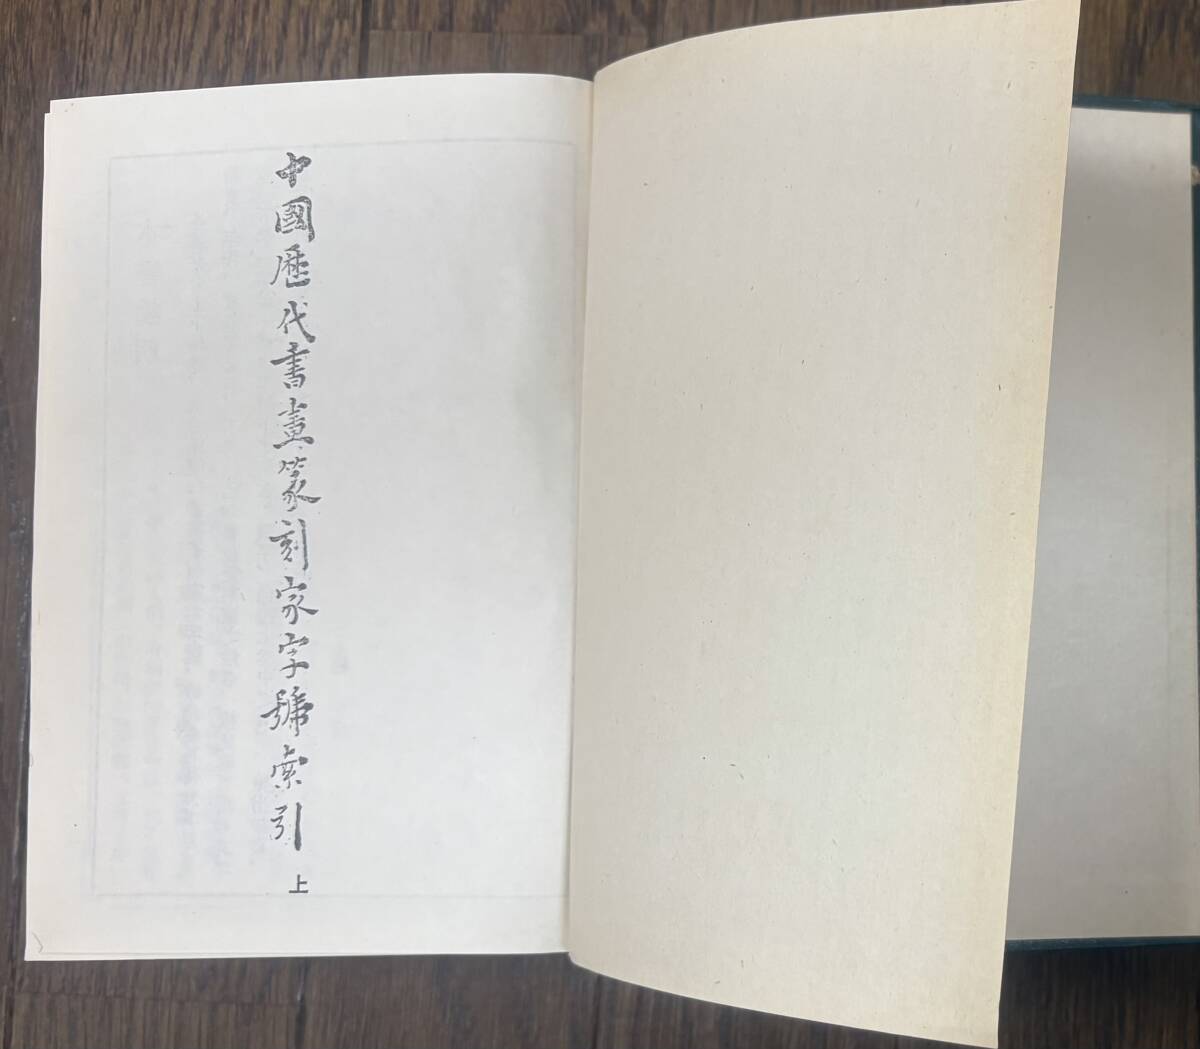 中國歷代書畫篆刻家字號索引
上